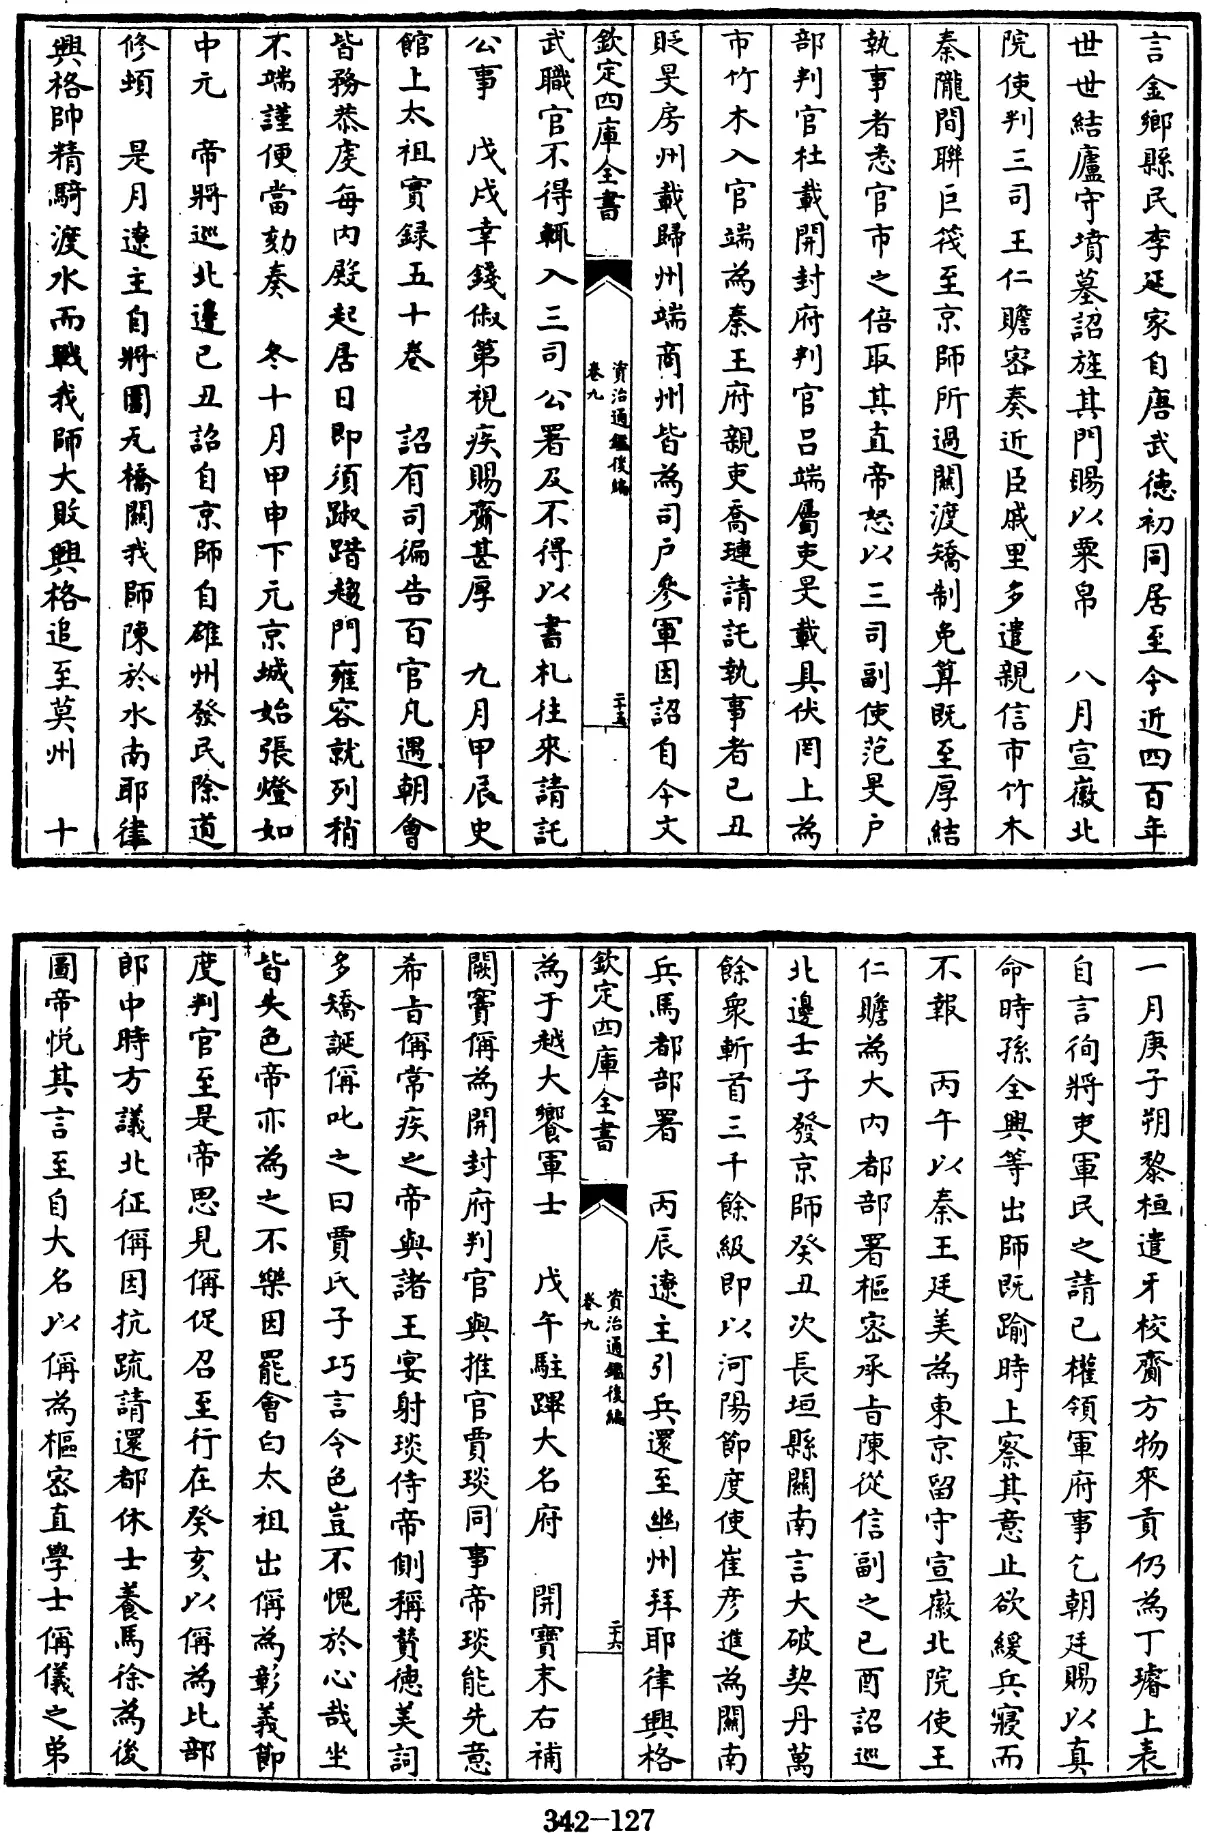 言金鄉縣民李延家自唐武徳初同居至今近四百年
世世結廬守墳墓詔旌其門賜以粟帛　八月宣徽北
院使判三司王仁贍宻奏近臣戚里多遣親信市竹木
秦隴間聯巨筏至京師所過關渡矯制免算既至厚結
執事者悉官市之倍取其直帝怒以三司副使范旻户
部判官杜載開封府判官吕端屬吏旻載具伏罔上為
市竹木入官端為秦王府親吏喬璉請託執事者己丑
貶旻房州載歸州端商州皆為司户參軍因詔自今文
欽定四庫全書
資治通鑑後編
卷九
二十五
武職官不得輒入三司公署及不得以書札往來請託
公事　戊戌幸錢俶第視疾賜賚甚厚　九月甲辰史
館上太祖實録五十卷　詔有司徧告百官凡遇朝會
皆務恭虔每内殿起居日即須踧踖趨門雍容就列稍
不端謹便當劾奏　冬十月甲申下元京城始張燈如
中元　帝將巡北邊己丑詔自京師自雄州發民除道
修頓　是月遼主自將圍瓦橋關我師陳於水南耶律
興格帥精騎渡水而戰我師大敗興格追至莫州　十
一月庚子朔黎桓遣牙校賫方物來貢仍為丁璿上表
自言徇將吏軍民之請已權領軍府事乞朝廷賜以真
命時孫全興等出師既踰時上察其意止欲緩兵寢而
不報　丙午以秦王廷美為東京留守宣徽北院使王
仁贍為大内都部署樞宻承㫖陳從信副之己酉詔巡
北邊壬子發京師癸丑次長垣縣關南言大破契丹萬
餘衆斬首三千餘級即以河陽節度使崔彦進為關南
兵馬都部署　丙辰遼主引兵還至幽州拜耶律興格
欽定四庫全書
資治通鑑後編
卷九
二十六
為于越大饗軍士　戊午駐蹕大名府　開寶末右補
闕竇偁為開封府判官與推官賈琰同事帝琰能先意
希㫖偁常疾之帝與諸王宴射琰侍帝側稱贊徳美詞
多矯誕偁叱之曰賈氏子巧言令色豈不愧於心哉坐
皆失色帝亦為之不樂因罷㑹白太祖出偁為彰義節
度判官至是帝思見偁促召至行在癸亥以偁為比部
郎中時方議北征偁因抗疏請還都休士養馬徐為後
圖帝悦其言至自大名以偁為樞宻直學士偁儀之弟
342-127